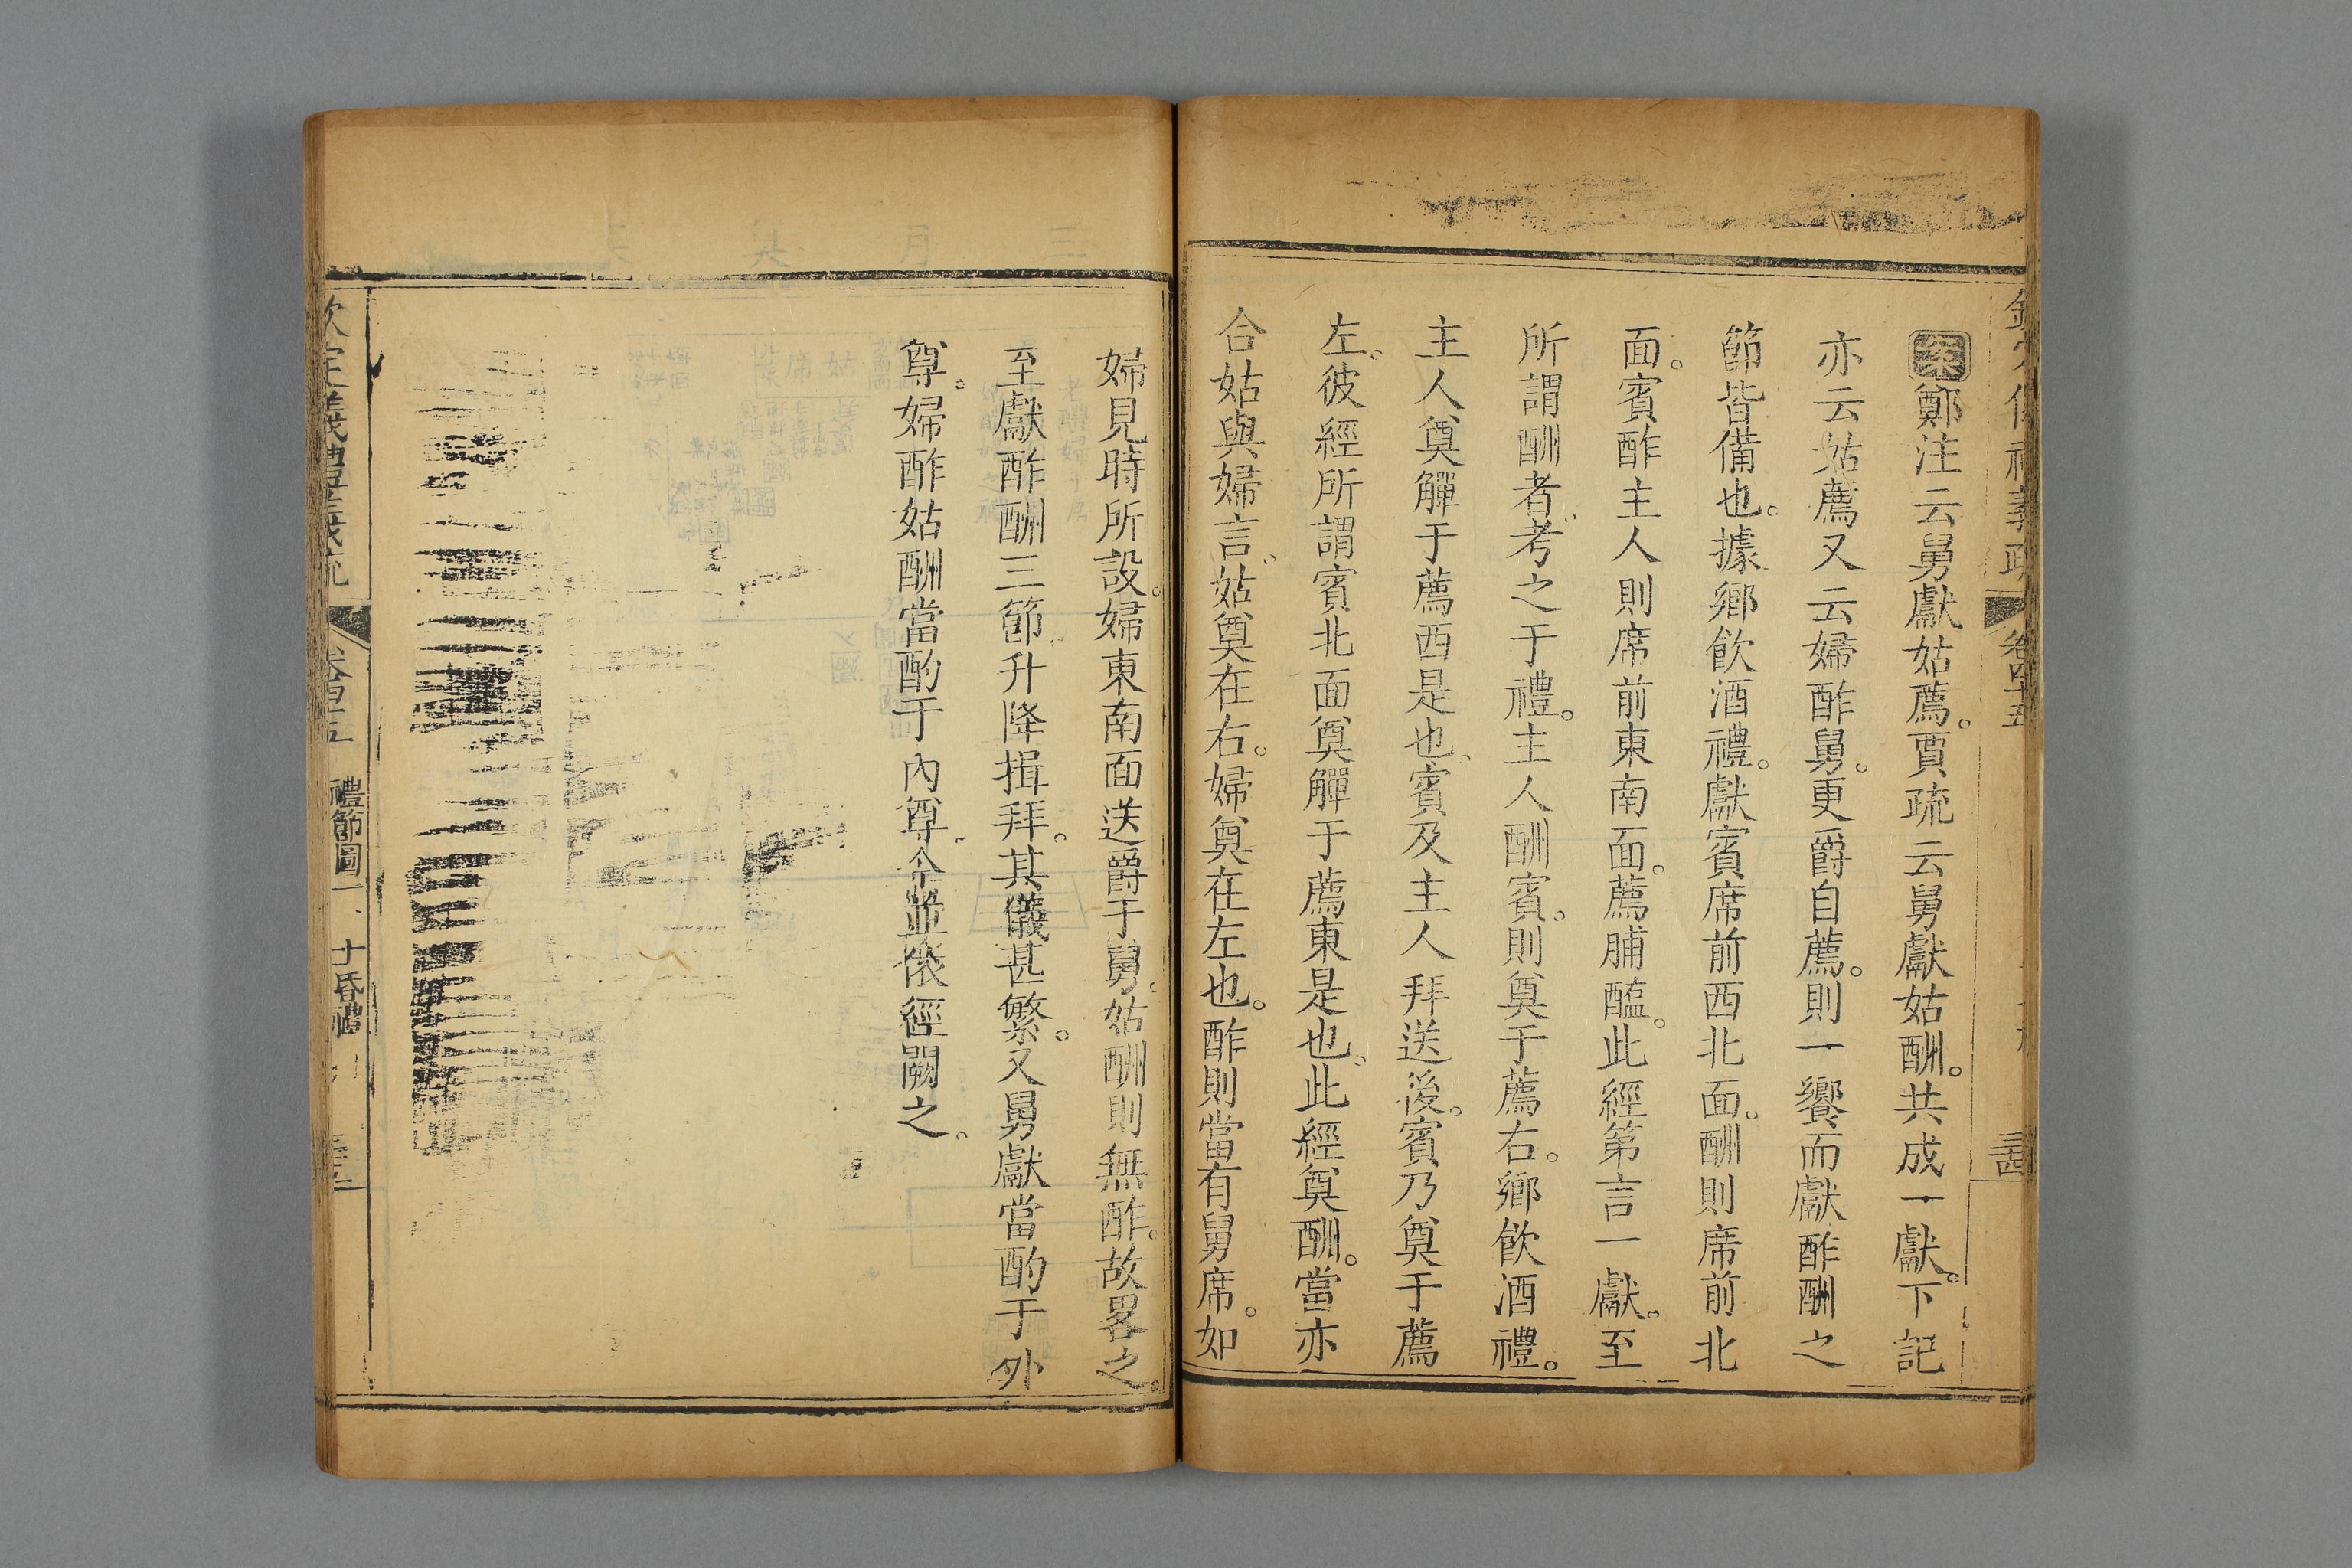 欽定儀禮義疏 卷四十五
案鄭注云舅獻姑薦。賈疏云舅獻姑酬。共成一獻。下記
亦云姑薦又云婦酢舅。更爵自薦。則一饗而獻酢酬之
節皆備也。據鄉飲酒禮。獻賓席前西北面。酬則席前北
面。賓酢主人則席前東南面。薦脯醢。此經第言一獻。至
所謂酬者。考之于禮。主人酬賓。則奠于薦右。鄉飲酒禮。
主人奠觶于薦西是也、賓及主人拜送後。賓乃奠于薦
左。彼經所謂賓北面奠觶于薦東是也、此經奠酬。當亦
合姑與婦言、姑奠在右。婦奠在左也。酢則當有舅席。如
婦見時所設。婦東南面送爵于舅。姑酬則無酢。故畧之。
至獻酢酬三節、升降揖拜。其儀甚繁。又舅獻當酌于外
尊。婦酢姑酬當酌于內尊、今並依經闕之。
欽定儀禮義疏 卷四十五 禮節圖一、士昏禮